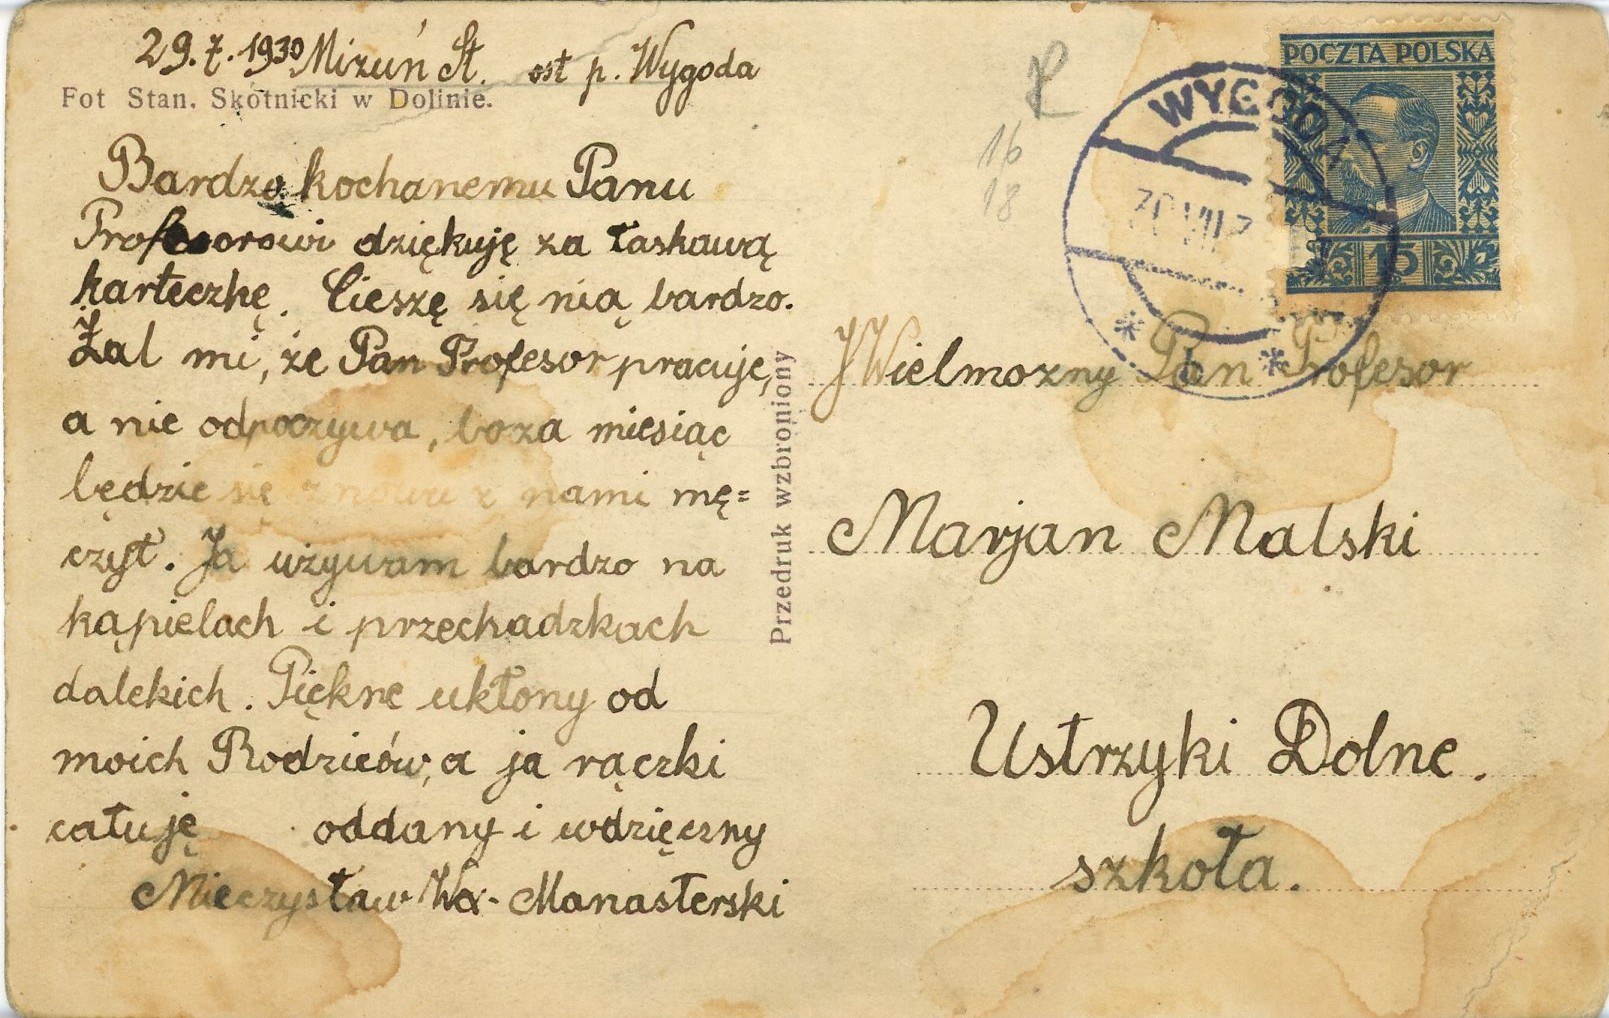 29.7.1930 Mizuń St. ost p. Wygoda
Fot Stan. Skotnicki w Dolinie.
Bardzo kochanemu Panu
Profesorowi dziękuję za łaskawą
karteczkę. Cieszę się nią bardzo.
Żal mi, że Pan Profesor pracuje,
a nie odpoczywa, bo za miesiąc
będzie się znowu z nami mę=
czył. Ja używam bardzo na
kąpielach i przechadzkach
dalekich. Piękne ukłony od
moich Rodziców, a ja rączki
całuję oddany i wdzięczny
Mieczysław Manasterski
Przedruk wzbroniony
16
18
WYGODA
30 VII 3
* b *
POCZTA POLSKA
15
JWielmożny Pan Profesor
Marjan Malski
Ustrzyki Dolne.
szkoła.